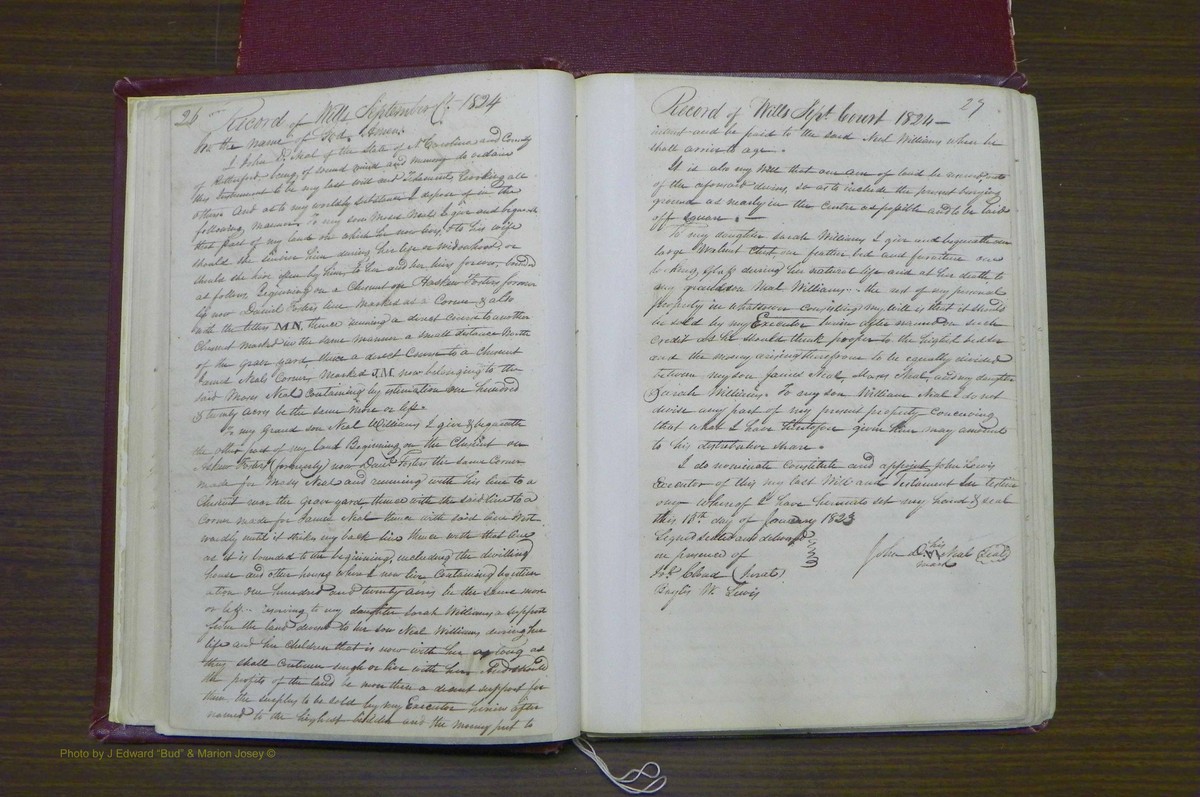 26
Record of Wills September Ct. 1824
In the name of God Amen.
I John D. Neal of the State of N Carolina and County
of Rutherford being of sound mind and memory do ordain
this Instrument to be my last will and Testament, revoking all
others And as to my worldly substance I dispose of in the
following manner, To my son Moses Neal I give and bequeath
that part of my land on which he now lives, & to his wife
should she survive him during her life or widowhood, or
should she have issue by him, to her and her heirs forever, bounded
as follows, Beginning on a Chesnut
now Daniel Fosters line marked as a Corner, & also
with the letters M N, thence running a direct course to another
Chesnut marked in the same manner a small distance North
of the grave yard, thence a direct Course to a Chesnut
James Neals Corner, marked J.M. now belonging to the
said Moses Neal containing by estimation One hundred
& twenty acres be the same more or less.
To my Grand son Neal Williams I give & bequeath
the other part of my land Beginning on the Chesnut on
Fosters (formerly) now Danl Fosters the same Corner
made for Moses Neal and running with his line to a
Chesnut near the grave yard, thence with the said line to a
Corner made for James Neal thence with said line West
wardly until it strikes my back line thence with that line
as it is bounded to the beginning, including the dwelling
house and other houses where I now live Containing by estim
ation One hundred and twenty acres be the same more
or less. my daughter Sarah Williams a support
from the land to her son Neal Williams during her
life and her Children that is now with her as long as
they shall continue single or live with her. And should
the profits of the land be more than a decent support for
them the surplus to be sold by my Executor herein after
named to the highest bidder and the money put to
27
Record of Wills Sept. Court 1824 —
and be paid to the said Neal Williams when he
shall arrive to age.
It is also my Will that one acre of land be
of the aforesaid so as to include the present burying
ground as nearly in the Centre as possible and to be laid
off square. —
To my daughter Sarah Williams I give and bequeath one
large Walnut Chest one feather bed and furniture one
looking glass during her natural life and at her death to
my grandson Neal Williams. the rest of my personal
property in whatsoever consisting my will is that it should
be sold by my Executor herein after named on such
credit as he should think proper to the highest bidder
and the money arising therefrom to be equally divided
between my son James Neal, Moses Neal, and my daughter
Sarah Williams. To my son William Neal I do not
devise any part of my present property Conceiving
that what I have heretofore given him may amount
to his distributive share.
I do nominate constitute and appoint John Lewis
Executor of this my last Will and Testament In testim
ony whereof I have hereunto set my hand & seal
this 15th day of January 1823
Signed sealed and delivered
in presence of
his
John D. Neal (Seal)
mark
Cloud (Jurat)
W. Lewis
Photo by J Edward "Bud" & Marion Josey ©